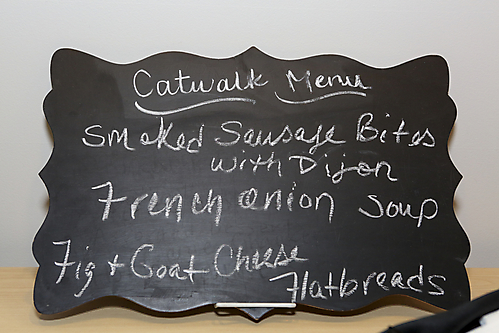 Catwalk Menu
Smoked Sausage Bites
with Dijon
French onion soup
Fig + Goat Cheese
Flatbreads